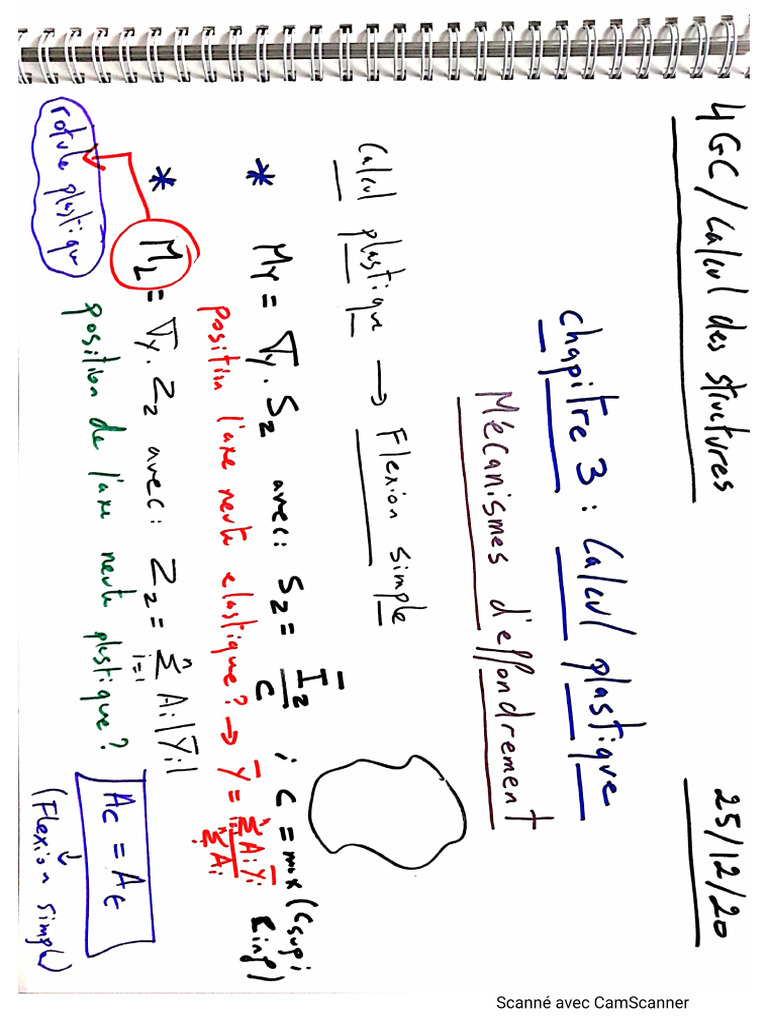 4GC/Calcul des structures
25/12/20
chapitre 3 : Calcul plastique
Mécanismes d'effondrement
Calcul plastique → Flexion simple
* My = σy . Sz avec: Sz = Īz / C ; C = max (Csup ; Cinf)
position l'axe neutre elastique ? → ȳ = Σ Ai ȳi / Σ Ai
* ML = σy . Zz avec: Zz = Σ(i=1→n) Ai |ȳi|
rotule plastique
position de l'axe neutre plastique ?
Ac = At
(Flexion simple)
Scanné avec CamScanner